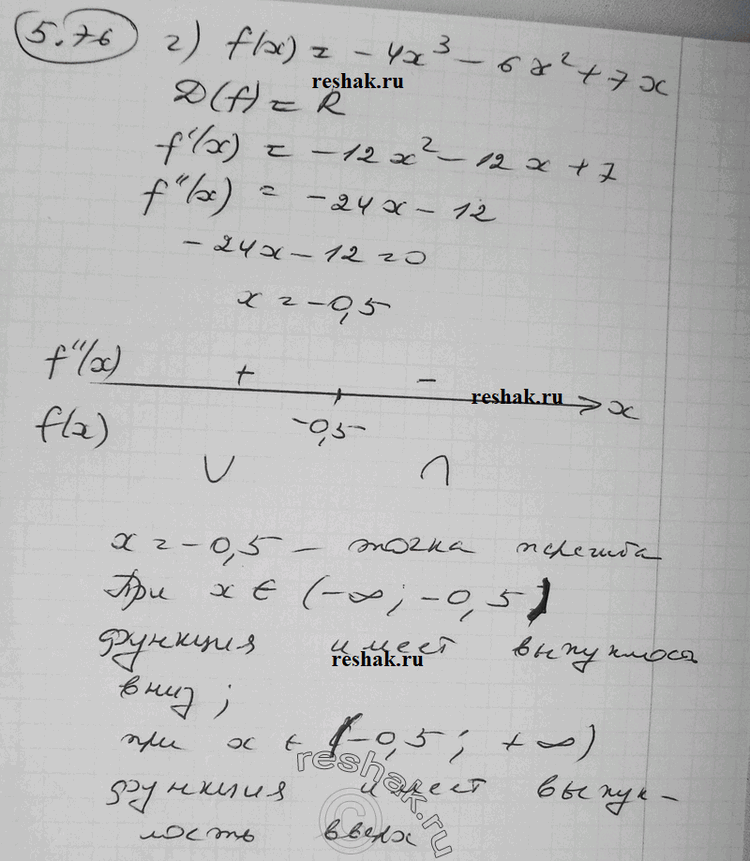 5.76 г) f(x) = -4x³ - 6x² + 7x
reshak.ru
D(f) = R
f'(x) = -12x² - 12x + 7
f''(x) = -24x - 12
-24x - 12 = 0
x = -0,5
f''(x) + -
reshak.ru
x
f(x) -0,5
∪ ∩
x = -0,5 - точка перегиба
При x ∈ (-∞; -0,5)
функция имеет выпуклость
reshak.ru
вниз;
при x ∈ (-0,5; +∞)
функция имеет выпук-
лость вверх
reshak.ru
©